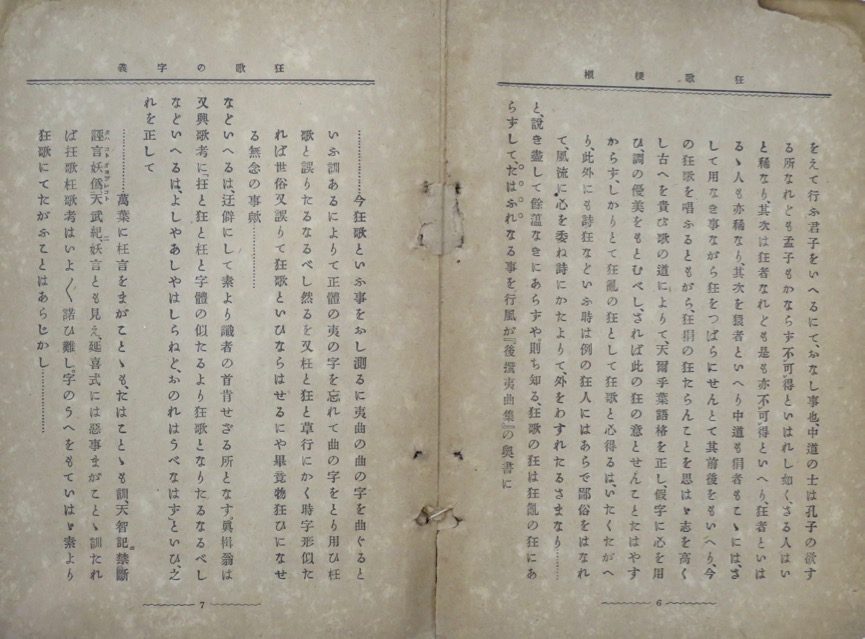 狂歌梗槪
をえて行ふ君子をいへるにて、おなし事也、中道の士は孔子の欲す
る所なれども孟子もかならす不可得といはれし如く、さる人はい
と稀なり、其次は狂者なれども是も亦不可得といへり、狂者といは
るゝ人も亦稀なり、其次を猥者といへり中道も狷者もこゝには、さ
して用なき事ながら狂をつばらにせんとて其前後をもいへり、今
の狂歌を唱ふるともがら、狂狷の狂たらんことを思はゞ志を高く
し古へを貴び歌の道によりて、天爾乎葉語格を正し、假字に心を用
ひ、調の優美をもとむべし、されば此の狂の意とせんことたはやす
からず、しかりとて狂亂の狂として狂歌と心得るは、いたくたがへ
り、此外にも詩狂などいふ時は例の狂人にはあらで鄙俗をはなれ
て、風流に心を委ね詩にかたよりて、外をわすれたるさまなり………
と、說き盡して餘薀なきにあらすや、則ち知る、狂歌の狂は狂亂の狂にあ
らずして、たはふれなる事を行風が『後撰夷曲集』の奧書に
6
狂歌の字義
…………今狂歌といふ事をおし測るに夷曲の曲の字を曲ぐると
いふ訓あるによりて正體の夷の字を忘れて曲の字をとり用ひ枉
歌と誤りたるなるべし然るを又枉と狂と草行にかく時字形似た
れば世俗又誤りて狂歌といひならはせるにや畢竟物狂ひになせ
る無念の事歟…………
などいへるは、迂僻にして素より識者の首肯せざる所となす眞楫翁は
又興歌考に「抂と狂と枉と字體の似たるより狂歌となりたるなるべし
などいへるは、よしやあしやはしらねど、おのれはうべなはす、といひ之
れを正して
…………萬葉に枉言をまがことゝも、たはことゝも訓、天智記、禁斷
誣言妖僞、天武紀、妖言とも見え、延喜式には惡事まがことゝ訓たれ
ば抂歌枉歌考はいよ〳〵諾ひ難し。字のうへをもていはゞ素より
狂歌にてたがふことはあらじかし…………
7